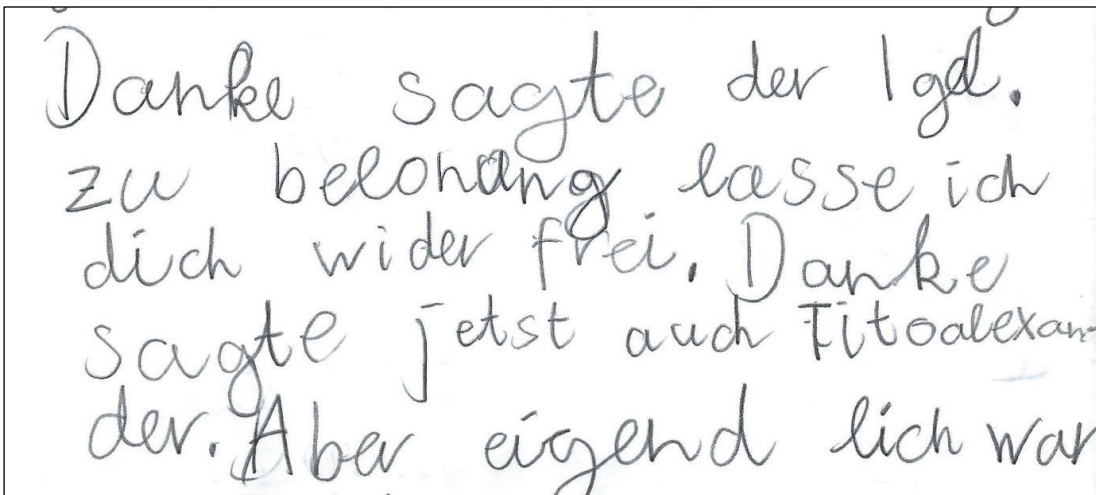 Danke sagte der Igel.
zu belonung lasse ich
dich wider frei. Danke
sagte jetst auch Titoalexan-
der. Aber eigend lich war